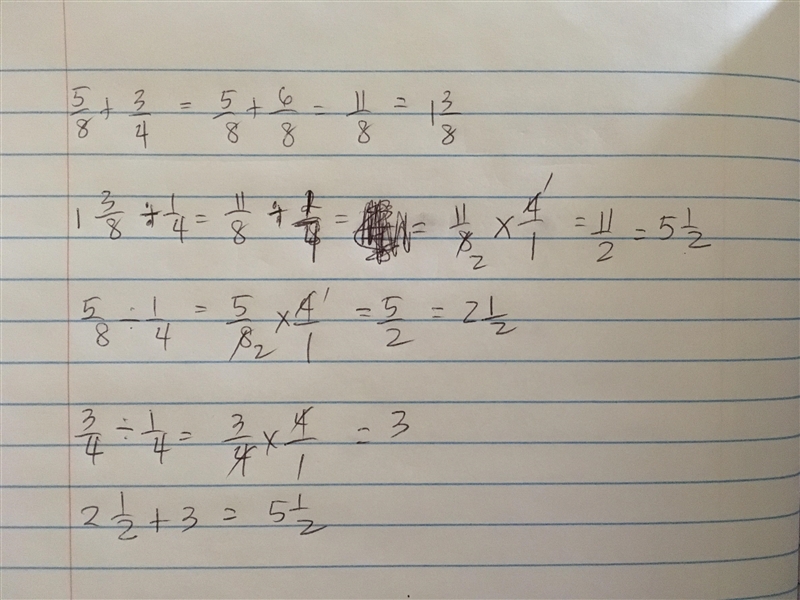 5/8 + 3/4 = 5/8 + 6/8 = 11/8 = 1 3/8
1 3/8 ÷ 1/4 = 11/8 ÷ 1/4 = = 11/8 2 × 4 1/1 = 11/2 = 5 1/2
5/8 ÷ 1/4 = 5/8 2 × 4 1/1 = 5/2 = 2 1/2
3/4 ÷ 1/4 = 3/4 × 4/1 = 3
2 1/2 + 3 = 5 1/2